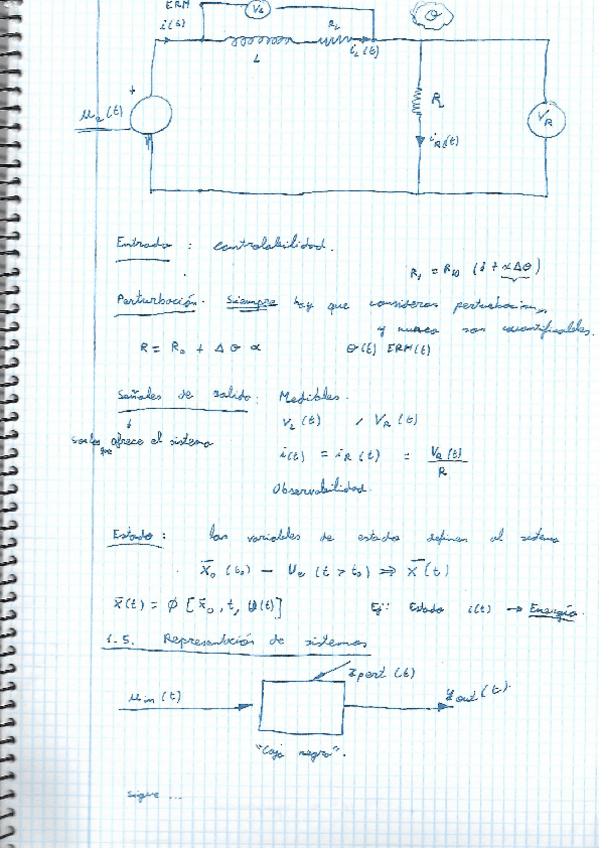 ERM
i(t)
V₂
R_L
i_L(t)
L
θ
+
R
V_R
i_R(t)
Entrada : controlabilidad.
R₁ = R₁₀ (1 + αΔθ)
Perturbación. Siempre hay que considerar perturbaciones
y nunca son cuantificables.
R = R₀ + Δθ α θ(t) ERM(t)
Señales de salida: Medibles.
V_L(t) , V_R(t)
son las que ofrece el sistema
i(t) = i_R(t) = V_R(t) / R
Observabilidad.
Estado : las variables de estado definen al sistema
x̄₀(t₀) — Ue (t > t₀) ⇒ x̄(t)
x̄(t) = ϕ [x̄₀, t, U(t)] Ej: Estado i(t) → Energía.
1.5. Representación de sistemas
z pert (t)
u in (t)
y out (t).
"Caja negra".
sigue ...